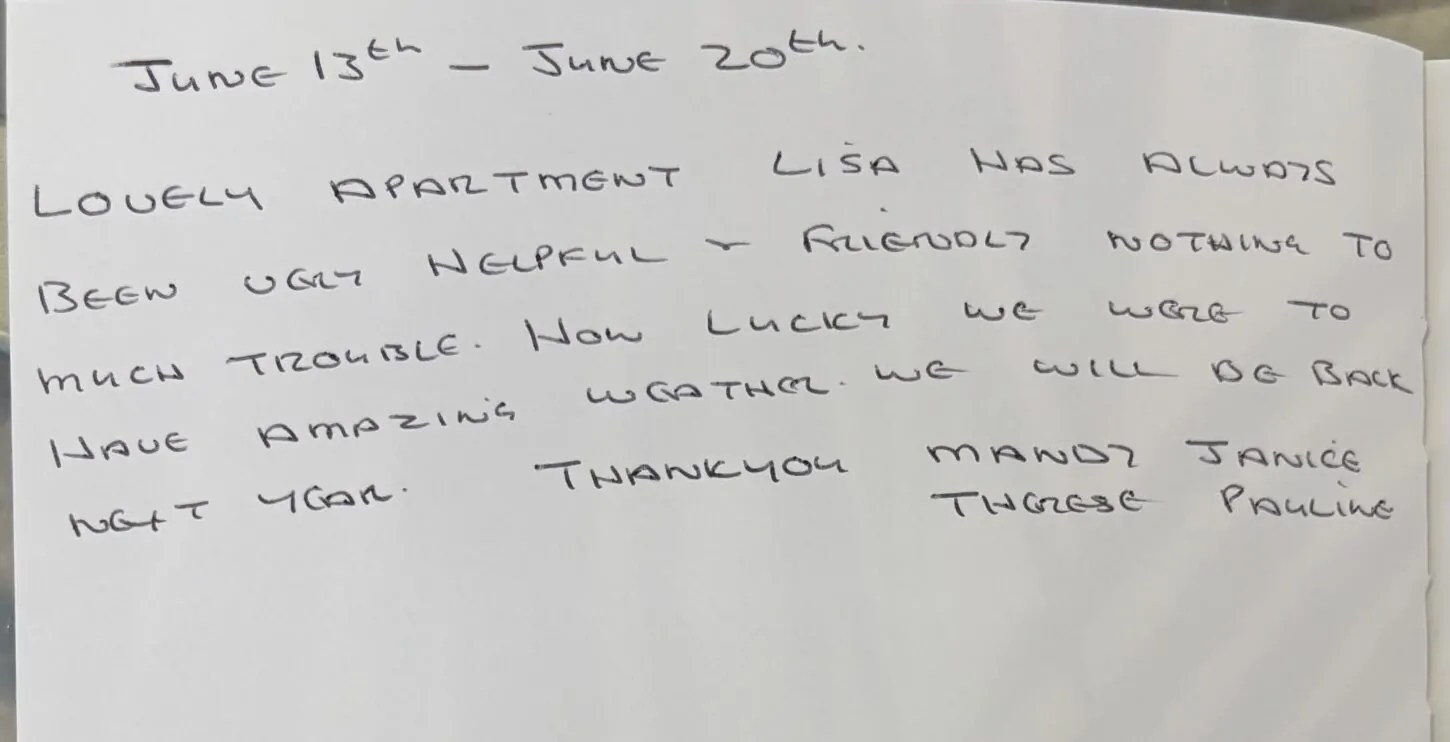 JUNE 13th - JUNE 20th.
LOVELY APARTMENT LISA HAS ALWAYS
BEEN VERY HELPFUL + FRIENDLY NOTHING TO
MUCH TROUBLE. HOW LUCKY WE WERE TO
HAVE AMAZING WEATHER. WE WILL BE BACK
NEXT YEAR. THANKYOU MANDY JANICE
THERESE PAULINE